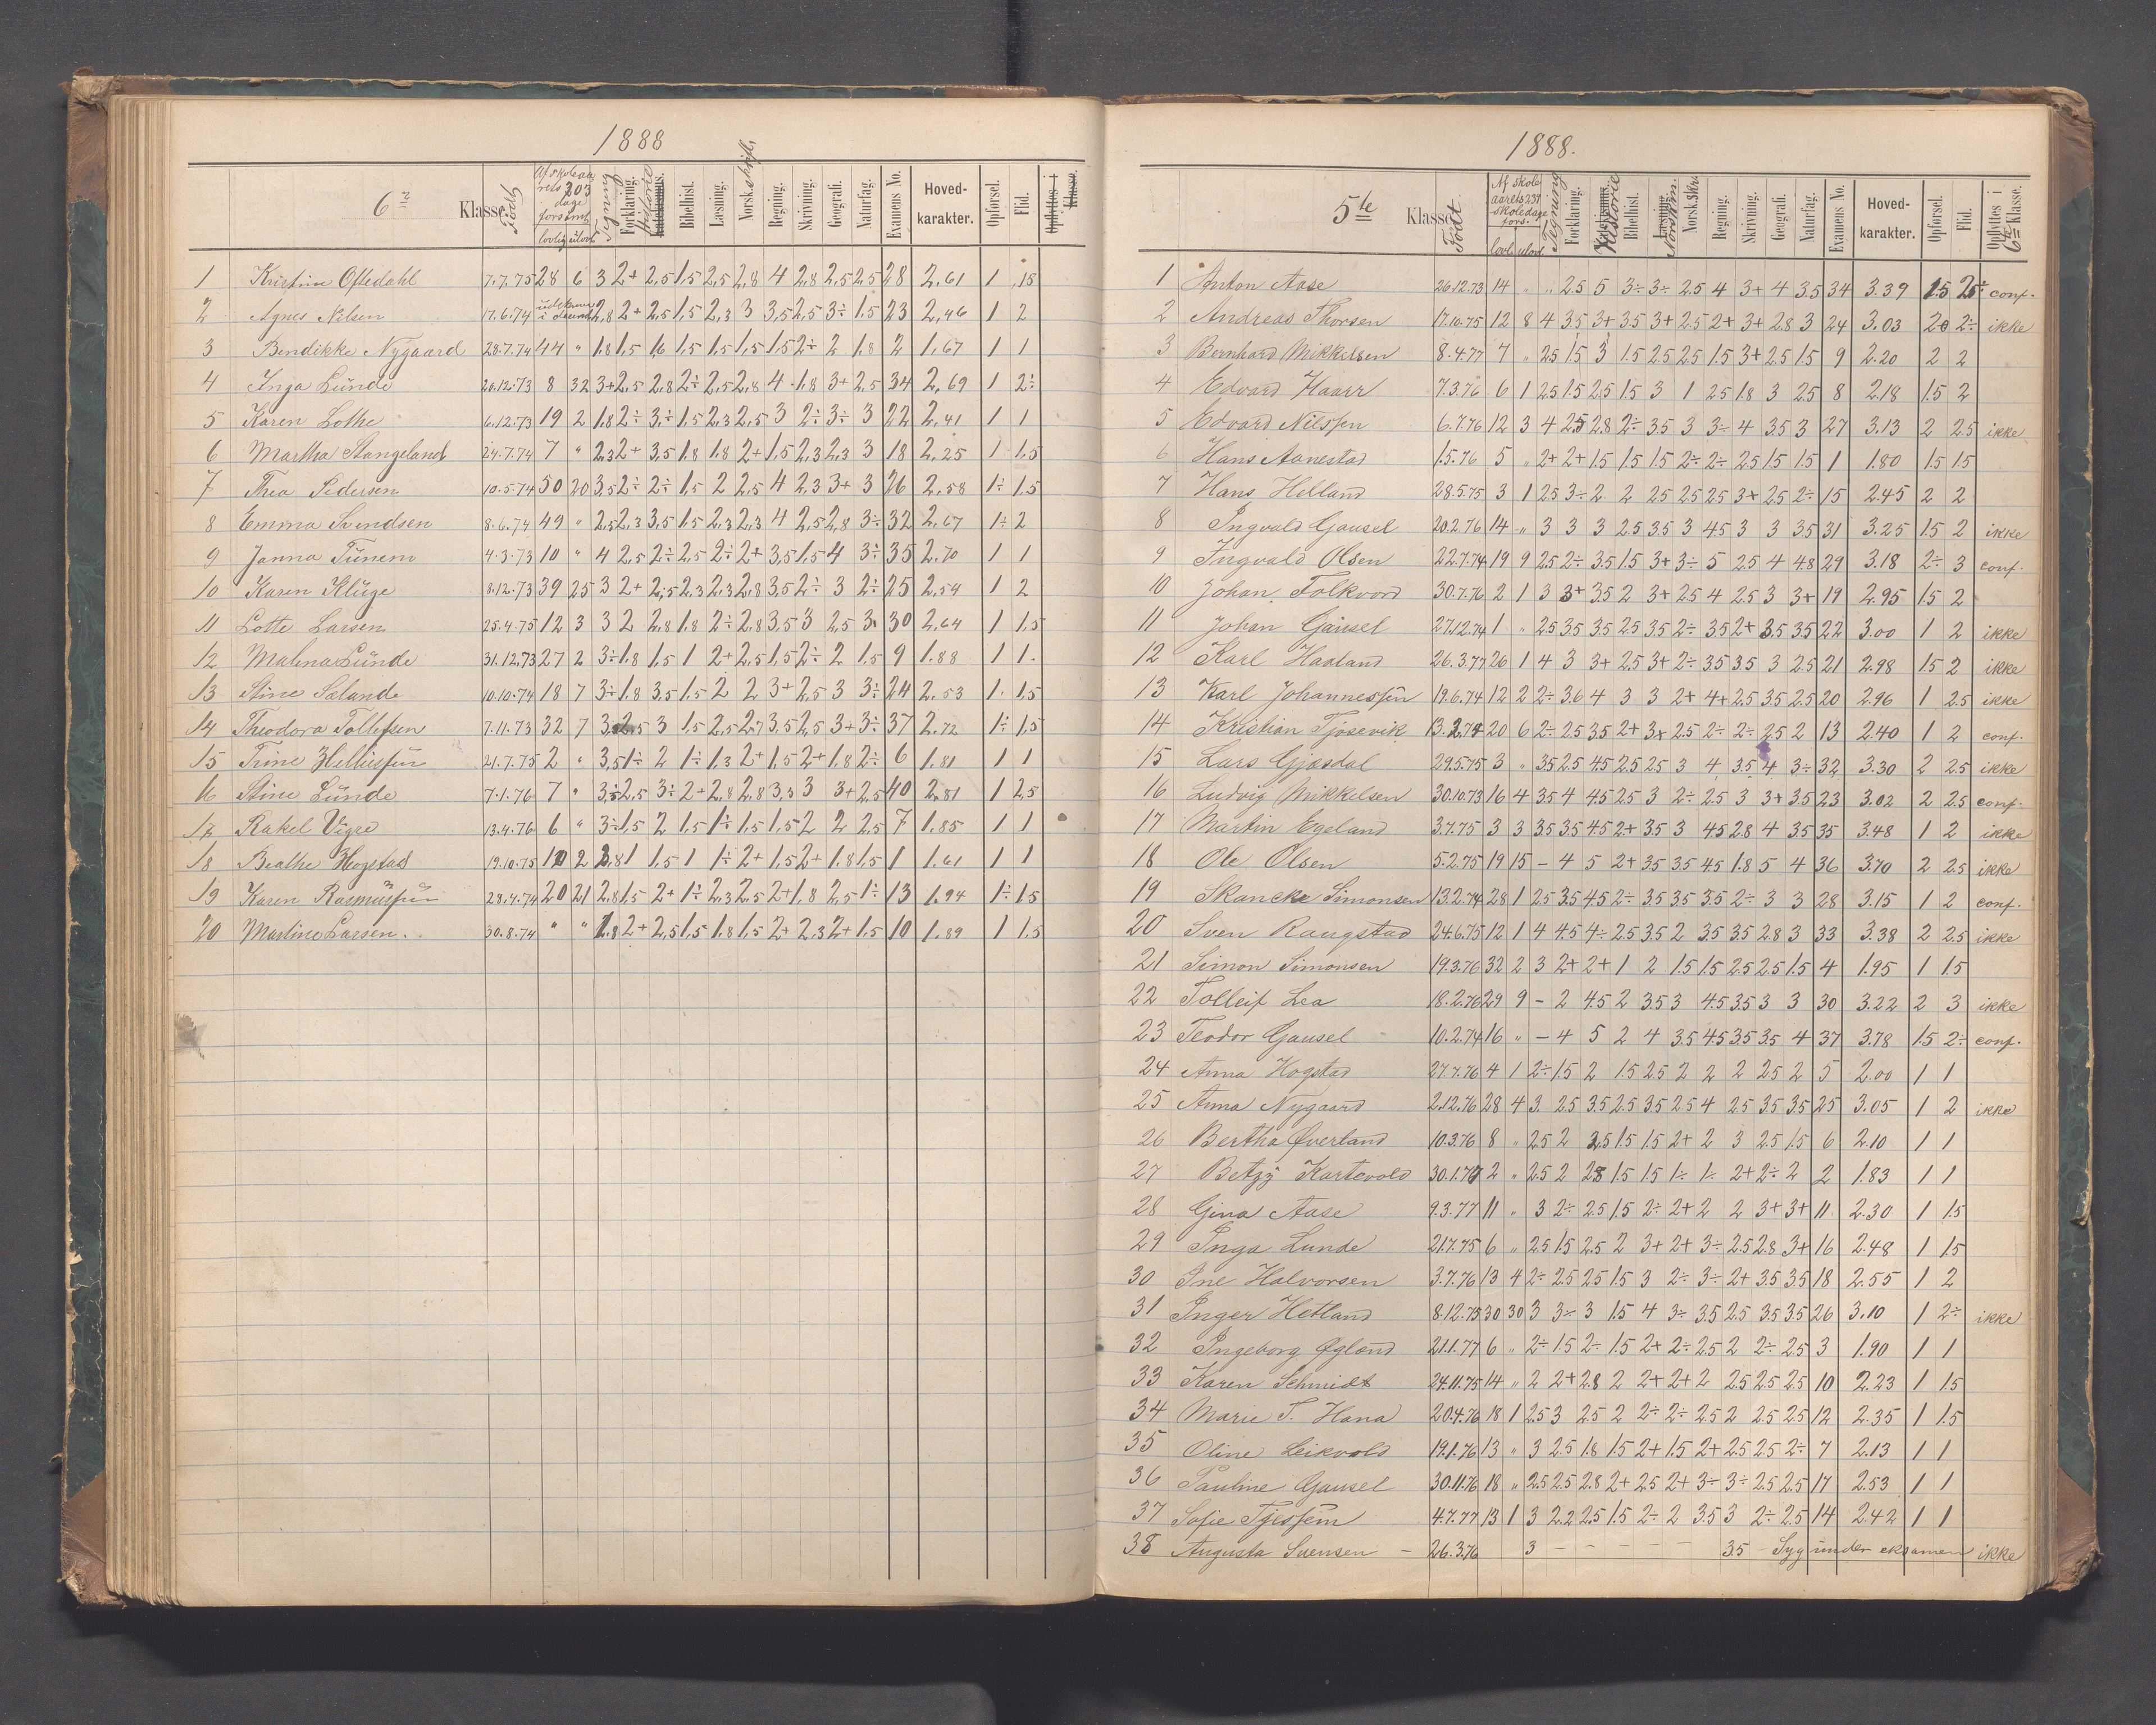 1888
6 Klasse. Født Af skoleaarets 203 dage forsømt lovlig ulovl. Tegning Forklaring. Historie Bibelhist. Læsning. Norsk skriftl. Regning. Skrivning. Geografi. Naturfag. Examens No. Hoved-karakter. Opførsel. Flid. Opflyttes i Klasse.
1 Kristine Oftedahl 7.7.75 28 6 3 2+ 2,5 1,5 2,5 2,8 4 2,8 2,5 2,5 28 2,61 1 1,5
2 Agnes Nilsen 17.6.74 2,8 2+ 2,5 1,5 2,3 3 3,5 2,5 3÷ 1,5 23 2,46 1 2
3 Bendikke Nygaard 28.7.74 44 " 1.8 1,5 1,6 1,5 1,5 1,5 1,5 2÷ 2 1,8 2 1,67 1 1
4 Inga Lunde 20.12.73 8 32 3+ 2,5 2,8 2÷ 2,5 2,8 4 1.8 3+ 2,5 34 2,69 1 2÷
5 Karen Lothe 6.12.73 19 2 1,8 2÷ 3÷ 1,5 2,3 2,5 3 2÷ 3÷ 3 22 2,41 1 1
6 Martha Stangeland 24.7.74 7 " 2,3 2+ 3,5 1,8 1,8 2+ 1,5 2,3 2,3 3 18 2,25 1 1.5
7 Thea Pedersen 10.5.74 50 20 3,5 2÷ 2÷ 1,5 2 2,5 4 2,3 3+ 3 26 2,58 1÷ 1.5
8 Emma Svendsen 8.6.74 49 " 2,3 2,3 3,5 1,5 2,3 2,3 4 2,5 2,8 3÷ 32 2,67 1÷ 2
9 Janna Tunem 4.3.73 10 " 4 2,5 2÷ 2,5 2÷ 2+ 3,5 1,5 4 3÷ 35 2,70 1 1
10 Karen Kluge 8.12.73 39 25 3 2+ 2,5 2,3 2,3 2,8 3,5 2÷ 3 2÷ 25 2,54 1 2
11 Lotte Larsen 25.4.75 12 3 3 2 2,8 1,8 2÷ 2,8 3,5 3 2,5 3 30 2,64 1 1.5
12 Malena Lunde 31.12.73 27 2 3÷ 1.8 1,5 1 2+ 2,5 1,5 2÷ 2 1.5 9 1.88 1 1.
13 Stine Salande 10.10.74 18 7 3÷ 1.8 3,5 1,5 2 2 3+ 2,5 3 3÷ 24 2.53 1 1,5
14 Theodora Tollefsen 7.11.73 32 7 3 2,5 3 1,5 2,5 2,7 3,5 2,5 3+ 3÷ 37 2.72 1÷ 1.5
15 Trine Helliesen 21.7.75 2 " 3,5 1÷ 2 1÷ 1,3 2+ 1,5 2+ 1.8 2÷ 6 1.81 1 1
16 Stine Lunde 7.1.76 7 " 3,5 2,5 3÷ 2+ 2,8 2,8 3,3 3 3+ 2,5 40 2,81 1 2,5
17 Rakel Vigre 13.4.76 6 " 3÷ 1,5 2 1,5 1÷ 1,5 1,5 2 2 2,5 7 1.85 1 1
18 Beathe Hogstad 19.10.75 10 2 2,8 1 1.5 1 1÷ 2+ 1.5 2+ 1.8 1.5 1 1.61 1 1
19 Karen Rasmussen 28.4.74 20 21 2,8 1,5 2+ 1÷ 2,3 2,5 2+ 1.8 2,5 1÷ 13 1.94 1÷ 1.5
20 Martine Larsen. 30.8.74 " " 1.8 2+ 2,5 1,5 1.8 1,5 2+ 2,3 2+ 1.5 10 1.89 1 1.5
1888.
5te Klasse. Født. Af skoleaarets 231 skoledage fors. lovl. ulovl. Tegning Forklaring. Historie Bibelhist. Norsk min. Norsk Skr. Regning. Skrivning. Geografi. Naturfag. Examens No. Hoved-karakter. Opførsel. Flid. Opflyttes i 6te Klasse.
1 Anton Aase 26.12.73 14 " " 2.5 5 3÷ 3÷ 2.5 4 3+ 4 3.5 34 3.39 1.5 2.5÷ conf.
2 Andreas Thorsen 17.10.75 12 8 4 3.5 3+ 3.5 3+ 2.5 2+ 3+ 2.8 3 24 3.03 2 2÷ ikke
3 Bernhard Mikkelsen 8.4.77 7 " 2.5 1.5 3 1.5 2.5 2.5 1.5 3+ 2.5 1.5 9 2.20 2 2
4 Edvard Haarr 7.3.76 6 1 2.5 1.5 2.5 1.5 3 1 2.5 1.8 3 2.5 8 2.18 1.5 2
5 Edvard Nilssen 6.7.76 12 3 4 2.5 2.8 2÷ 3.5 3 3÷ 4 3.5 3 27 3.13 2 2.5 ikke
6 Hans Aanestad 1.5.76 5 " 2+ 2+ 1.5 1.5 1.5 2÷ 2÷ 2.5 1.5 1.5 1 1.80 1.5 1.5
7 Hans Helland 28.5.75 3 1 2.5 3÷ 2 2 2.5 2.5 2.5 3+ 2.5 2÷ 15 2.45 2 2
8 Ingvald Gausel 20.2.76 14 " 3 3 3 2.5 3.5 3 4.5 3 3 3.5 31 3.25 1.5 2 ikke
9 Ingvald Olsen 22.7.74 19 9 2.5 2÷ 3.5 1.5 3+ 3÷ 5 2.5 4 4.8 29 3.18 2÷ 3 conf.
10 Johan Folkvord 30.7.76 2 1 3 3+ 3.5 2 3+ 2.5 4 2.5 3 3+ 19 2.95 1.5 2
11 Johan Gausel 27.12.74 1 " 2.5 3.5 3.5 2.5 3.5 2÷ 3.5 2+ 3.5 3.5 22 3.00 1 2 ikke
12 Karl Haaland 26.3.77 26 1 4 3 3+ 2.5 3+ 2÷ 3.5 3.5 3 2.5 21 2.98 1.5 2 ikke
13 Karl Johannessen 19.6.74 12 2 2÷ 3.6 4 3 3 2+ 4+ 2.5 3.5 2.5 20 2.96 1 2.5 ikke
14 Kristian Tjøsevik 13.2.74 20 6 2÷ 2.5 3.5 2+ 3+ 2.5 2÷ 2÷ 2.5 2 13 2.40 1 2 conf.
15 Lars Gjøsdal 29.5.75 3 " 3.5 2.5 4.5 2.5 2.5 3 4 3.5 4 3÷ 32 3.30 2 2.5 ikke
16 Ludvig Mikkelsen 30.10.73 16 4 3.5 4 4.5 2.5 3 2÷ 2.5 3 3+ 3.5 23 3.02 2 2.5 conf.
17 Martin Egeland 3.7.75 3 3 3.5 3.5 4.5 2+ 3.5 3 4.5 2.8 4 3.5 35 3.48 1 2 ikke
18 Ole Olsen 5.2.75 19 15 – 4 5 2+ 3.5 3.5 4.5 1.8 5 4 36 3.70 2 2.5 ikke
19 Skancke Simonsen 13.2.74 28 1 2.5 3.5 4.5 2÷ 3.5 3.5 3.5 2÷ 3 3 28 3.15 1 2 conf.
20 Sven Raugstad 24.6.75 12 1 4 4.5 4÷ 2.5 3.5 2 3.5 3.5 2.8 3 33 3.38 2 2.5 ikke
21 Simon Simonsen 19.3.76 32 2 3 2+ 2+ 1 2 1.5 1.5 2.5 2.5 1.5 4 1.95 1 1.5
22 Tolleif Lea 18.2.76 29 9 – 2 4.5 2 3.5 3 4.5 3.5 3 3 30 3.22 2 3 ikke
23 Teodor Gausel 10.2.74 16 " – 4 5 2 4 3.5 4.5 3.5 3.5 4 37 3.78 1.5 2÷ conf.
24 Anna Hogstad 27.7.76 4 1 2÷ 1.5 2 1.5 2.5 2 2 2 2.5 2 5 2.00 1 1
25 Anna Nygaard 2.12.76 28 4 3. 2.5 3.5 2.5 3.5 2.5 4 2.5 3.5 3.5 25 3.05 1 2 ikke
26 Bertha Øverland 10.3.76 8 " 2.5 2 2.5 1.5 1.5 2+ 2 3 2.5 1.5 6 2.10 1 1
27 Betzy Kartevold 30.1.77 2 " 2.5 2 2.8 1.5 1.5 1÷ 1÷ 2+ 2÷ 2 2 1.83 1 1
28 Gina Aase 9.3.77 11 " 3 2÷ 2.5 1.5 2÷ 2+ 2 2 3+ 3+ 11 2.30 1 1.5
29 Inga Lunde 21.7.75 6 " 2.5 1.5 2.5 2 3+ 2+ 3÷ 2.5 2.8 3+ 16 2.48 1 1.5
30 Ine Halvorsen 3.7.76 13 4 2÷ 2.5 2.5 1.5 3 2÷ 3÷ 2+ 3.5 3.5 18 2.55 1 2
31 Inger Hetland 8.12.73 30 30 3 3÷ 3 1.5 4 3÷ 3.5 2.5 3.5 3.5 26 3.10 1 2÷ ikke
32 Ingeborg Øglænd 21.1.77 6 " 2÷ 1.5 2÷ 1.5 2+ 2÷ 2.5 2 2÷ 2.5 3 1.90 1 1
33 Karen Schmidt 24.11.75 14 " 2 2+ 2.8 2 2+ 2+ 2 2.5 2.5 2.5 10 2.23 1 1.5
34 Marie T. Hana 20.4.76 18 1 2.5 3 2.5 2 2÷ 2÷ 2.5 2 2.5 2.5 12 2.35 1 1.5
35 Oline Leikvold 19.1.76 13 " 3 2.5 1.8 1.5 2+ 1.5 2+ 2.5 2.5 2÷ 7 2.13 1 1
36 Pauline Gausel 30.11.76 18 " 2.5 2.5 2.8 2+ 2.5 2+ 3÷ 3÷ 2.5 2.5 17 2.53 1 1
37 Sofie 4.7.77 13 1 3 2.2 2.5 1.5 2÷ 2 3.5 3 2÷ 2.5 14 2.42 1 1
38 Augusta Svensen – 26.3.76 3 – – – – – 3.5 Syg under eksamen ikke